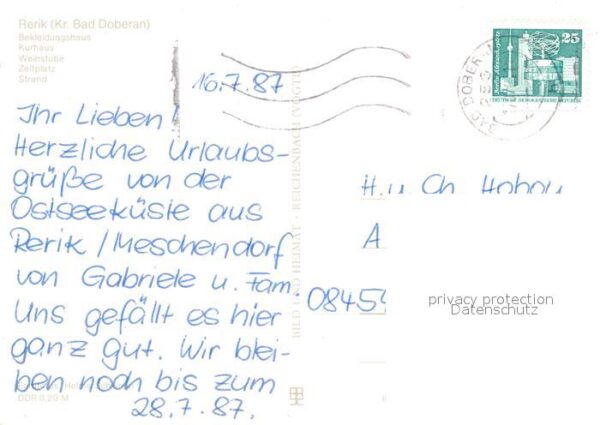 Rerik (Kr. Bad Doberan)
Bekleidungshaus
Kurhaus
Weinstube
Zeltplatz
Strand
16.7.87
Ihr Lieben!
Herzliche Urlaubs-
grüße von der
Ostseeküste aus
Rerik/Meschendorf
von Gabriele u. Fam.
Uns gefällt es hier
ganz gut. Wir blei-
ben noch bis zum
28.7.87.
DDR 0,20 M
BILD UND HEIMAT · REICHENBACH (VOGTL)
25
DEUTSCHE DEMOKRATISCHE REPUBLIK
BAD DOBER
0845
privacy protection
Datenschutz